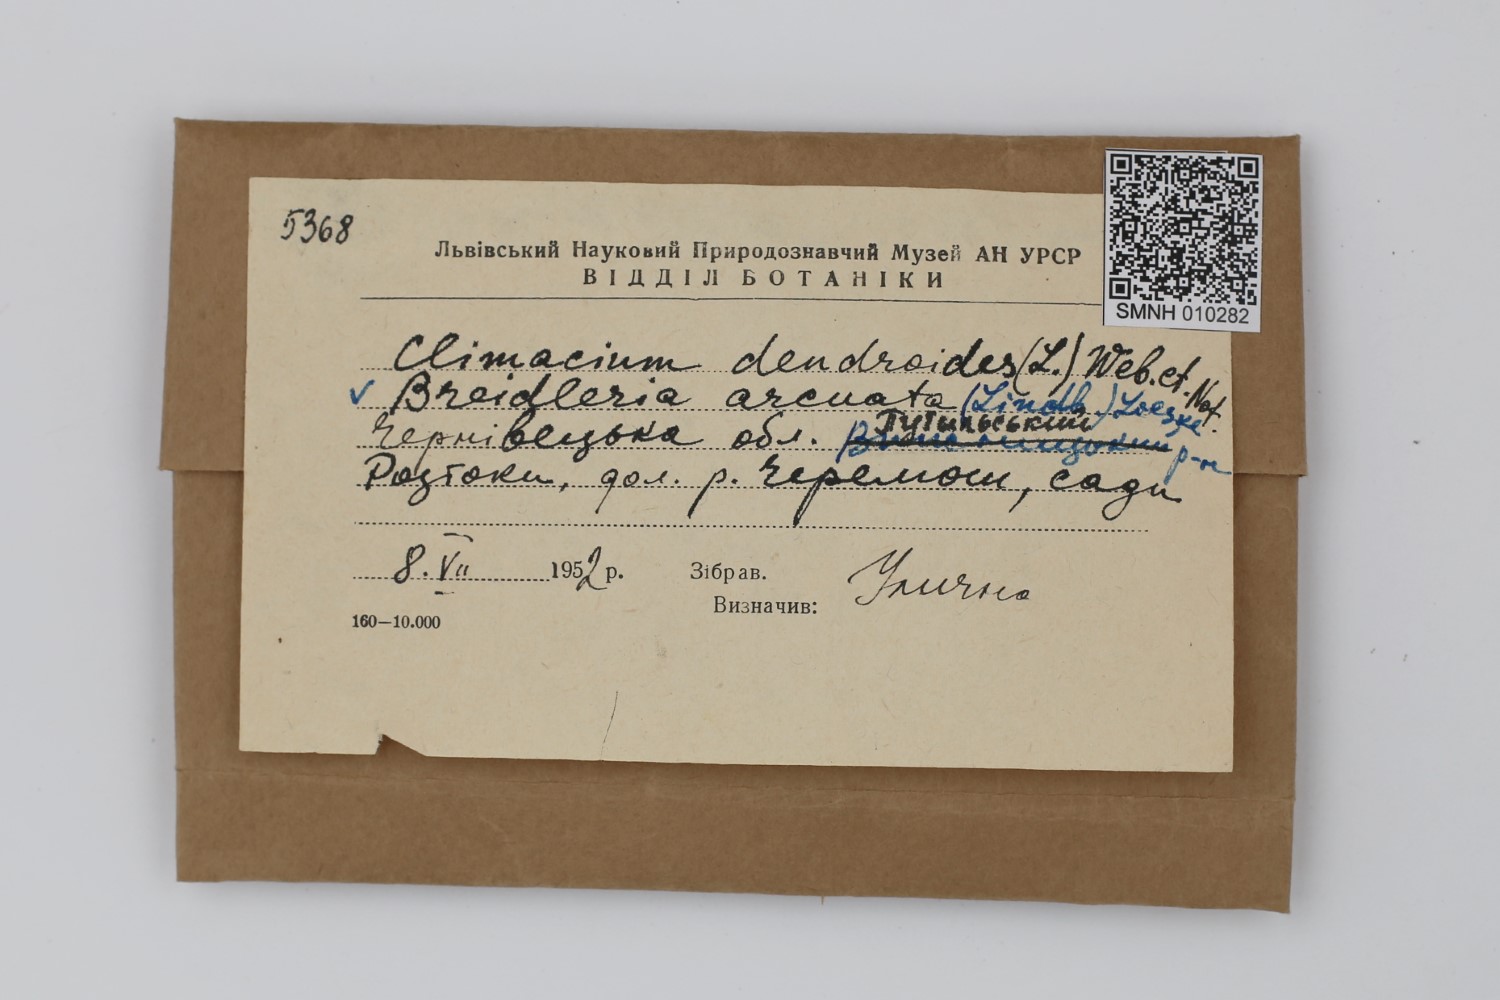 5368
Львівський Науковий Природознавчий Музей АН УРСР
ВІДДІЛ БОТАНІКИ
SMNH 010282
Climacium dendroides (L.) Web. et. Not.
✓ Breidleria arcuata (Lindb.) Loeske
Чернівецька обл. Путильський р-н
Розтоки, дол. р. Черемош, сади
8. VII 1952 р. Зібрав.
Визначив: Улична
160—10.000